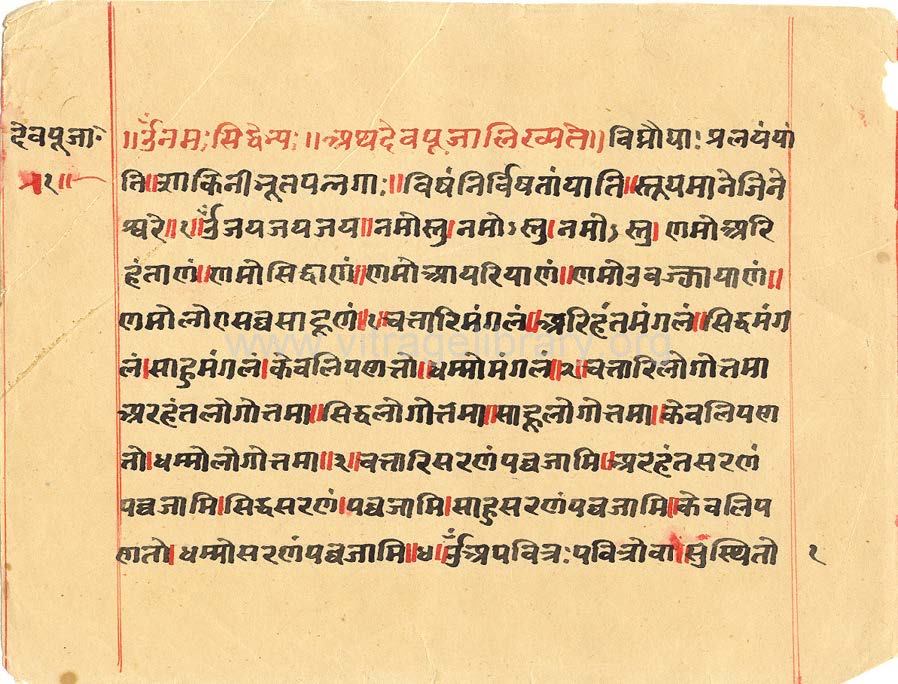 देवपूजा
प्र१॥
॥र्उँनमःसिद्धेभ्यः॥अथदेवपूजालिख्यते॥विघ्नौघाः प्रलयंयां
ति॥शाकिनीभूतपन्नगाः॥विषंनिर्विषतांयाति॥स्तूयमानेजिने
श्वरे॥१॥र्उँजयजयजय॥नमोस्तु।नमोऽस्तु।नमोऽस्तु।णमोअरि
हंताणं॥णमोसिद्धाणं॥णमोआयरियाणं॥णमोउवज्झायाणं॥
णमोलोएसव्वसाहूणं॥१॥चत्तारिमंगलं॥अरिहंतमंगलं॥सिद्धमंग
लं।साहुमंगलं।केवलिपणत्तो।धम्मोमंगलं॥२॥चत्तारिलोगोत्तमा
अरहंतलोगोत्तमा॥सिद्धलोगोत्तमा॥साहूलोगोत्तमा।केवलिपण
त्तो।धम्मोलोगोत्तमा॥३॥चत्तारिसरणंपव्वजामि॥अरहंतसरणं
पव्वजामि।सिद्धसरणं।पव्वजामि।साहुसरणंपव्वजामि।केवलिप
णतो।धम्मोसरणंपव्वजामि॥४॥र्उँअपवित्रःपवित्रोवा।सुस्थितो
१
www.vitragelibrary.org